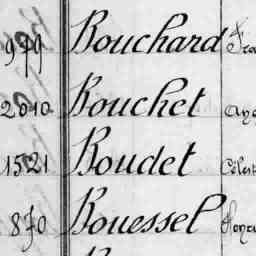 979 Bouchard
2010 Bouchet
1521 Boudet Célest
870 Bouessel